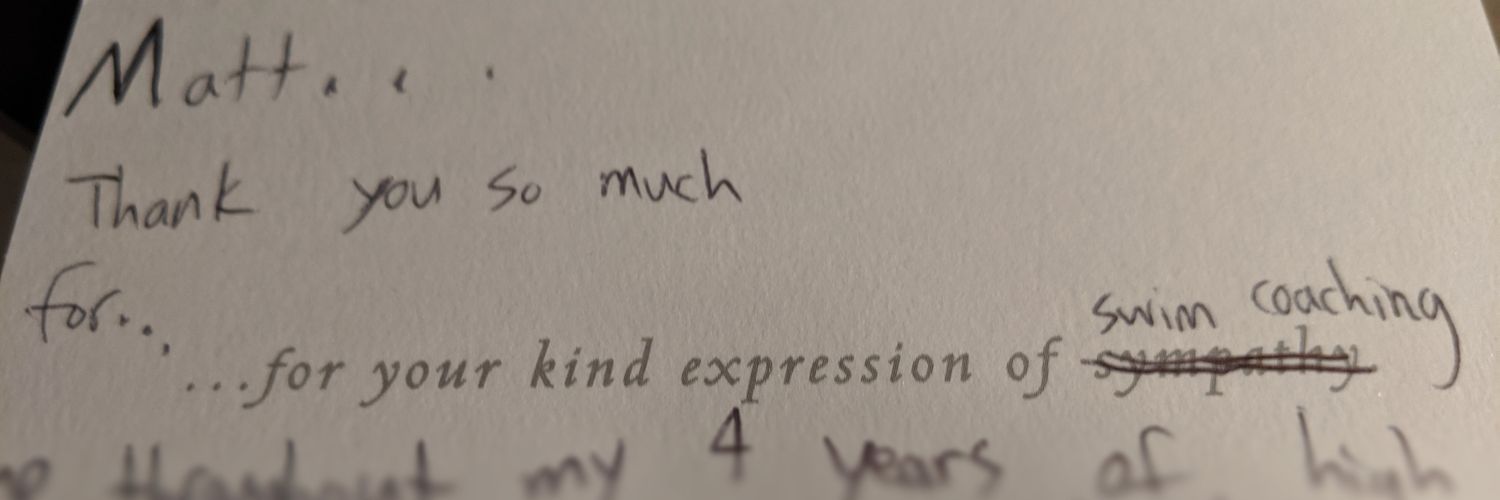 Matt...
Thank you so much
for...
swim coaching
...for your kind expression of sympathy
my 4 years of high